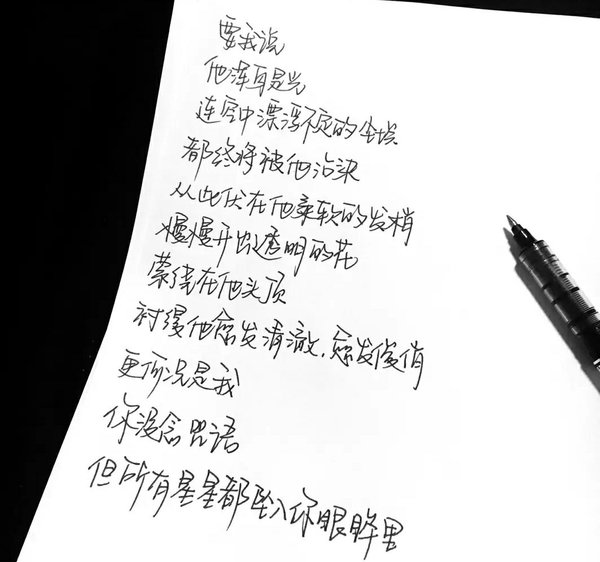 要我说
他浑身是光
连空中漂浮不定的尘埃
都终将被他沾染
从此伏在他柔软的发梢
慢慢开出透明的花
萦绕在他头顶
衬得他愈发清澈,愈发俊俏
更何况是我
你没念咒语
但所有星星都坠入你眼眸里